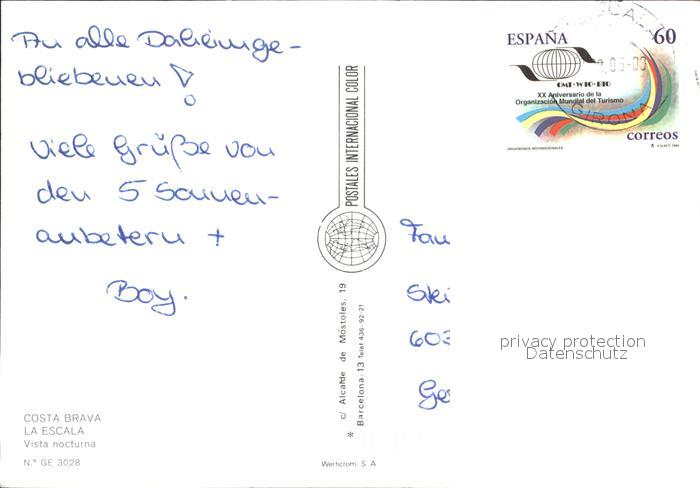 An alle Daheimge-
bliebenen!
Viele Grüße von
den 5 Sonnen-
anbetern +
Boy.
COSTA BRAVA
LA ESCALA
Vista nocturna
N.º GE 3028
POSTALES INTERNACIONAL COLOR
c/ Alcalde de Móstoles, 19
* Barcelona-13 Telef 436-92-21
Werticrom, S. A
ESPAÑA 60
OMT·WTO·BTO
XX Aniversario de la
Organización Mundial del Turismo
correos
ORGANISMOS INTERNACIONALES
GIRONA
Fam
Ski
603
Ge
privacy protection
Datenschutz